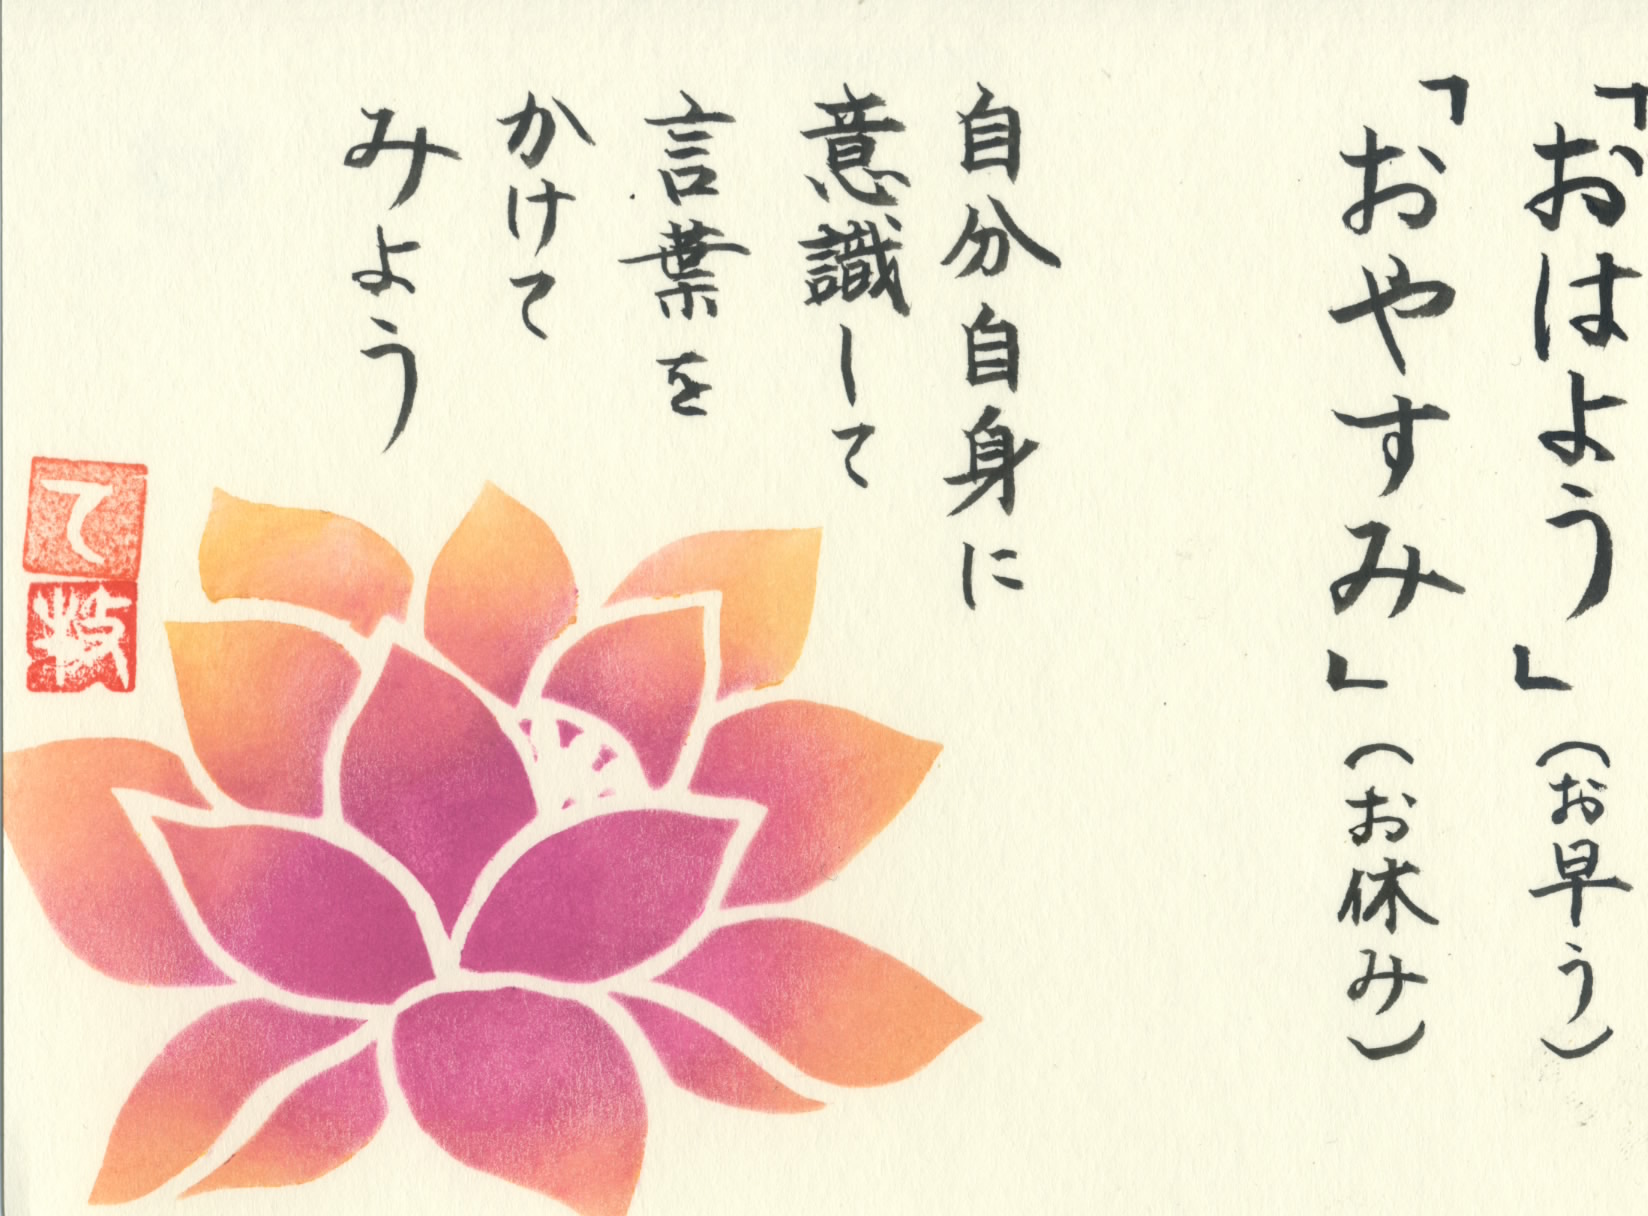 「おはよう」（お早う）
「おやすみ」（お休み）
自分自身に
意識して
言葉を
かけて
みよう
て
枝